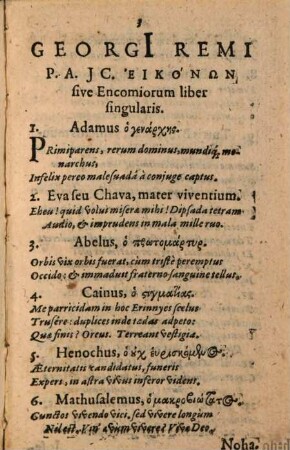 3
GEORGI REMI
P. A. JC. ἘΙΚΌΝΩΝ
sive Encomiorum liber
singularis.
1. Adamus ὁ γενάρχης.
PRimiparens, rerum dominus, mundiq́; monarchus,
Infelix pereo malesuadâ à conjuge captus.
2. Eva seu Chava, mater viventium.
Eheu! quid volui miseræ mihi! Dipsada tetram
Audio, & imprudens in mala mille ruo.
3. Abelus, ὁ πρωτομάρτυρ.
Orbis vix orbis fuerat, cum tristè peremptus
Occido: & immaduit fraterno sanguine tellus.
4. Cainus, ὁ στιγματίας.
Me parricidam in hoc Erinnyes scelus
Trusêre: duplices inde todas adpeto:
Quæ finis? Orcus. Terreant vestigia.
5. Henochus, ὁ οὐχ εὑρισκόμενος.
Æternitatis candidatus, funeris
Expers, in astra vivus inferor vident.
6. Mathusalemus, ὁ μακροβιώτατος.
Cunctos vivendo vici, sed vivere longum
Nil est. Vin' ævum vivere? Vive Deo.
Noha.